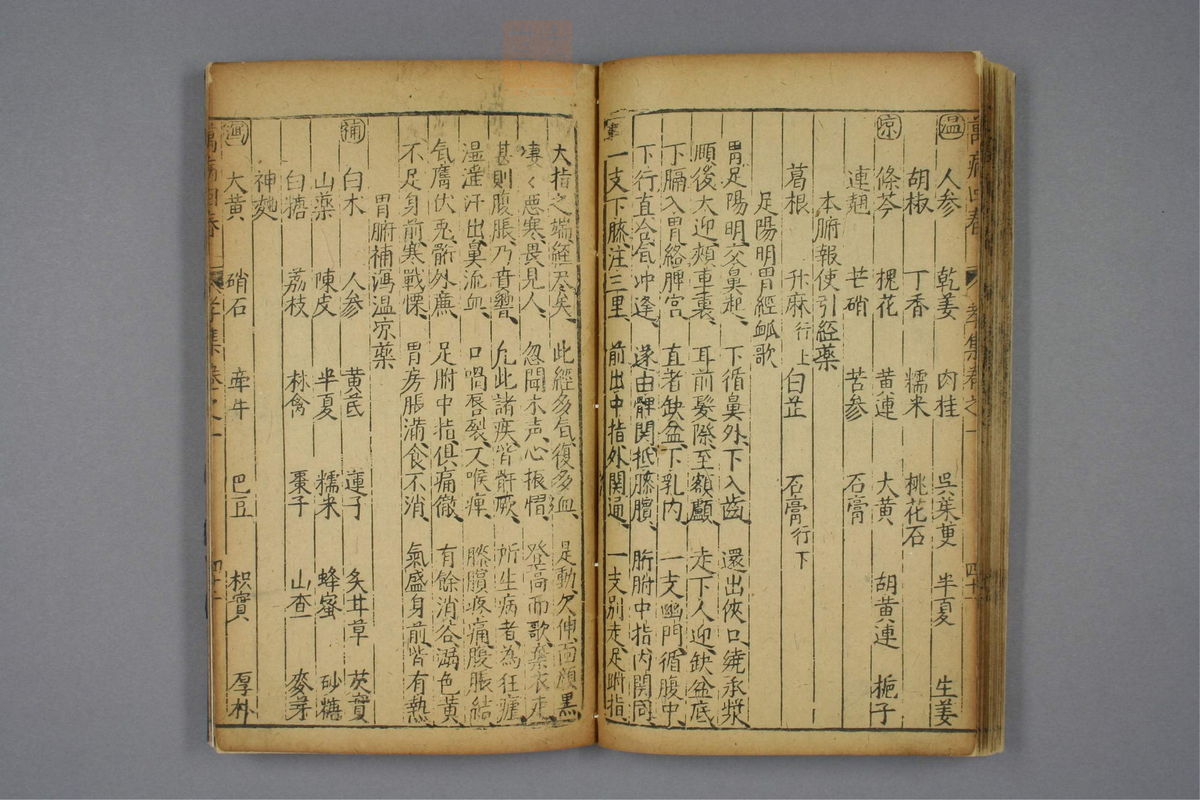 溫 人參 乾姜 肉桂 吳茱萸 半夏 生姜
胡椒 丁香 糯米 桃花石
凉 條芩 槐花 黃連 大黃 胡黃連 梔子
連翹 芒硝 苦參 石膏
本腑報使引經藥
葛根 升麻行上 白芷 石膏行下
足陽明胃經脉歌
胃足陽明交鼻起 下循鼻外下入齒 還出俠口繞承漿
頤後大迎頰車裏 耳前髮際至額顱 走下人迎缺盆底
下膈入胃絡脾宮 直者缺盆下乳內 一支幽門循腹中
下行直合氣冲逢 遂由髀關抵膝臏 胻胕中指內關同
一支下膝注三里 前出中指外關通 一支別走足跗指
大指之端經尽矣 此經多氣復多血 是動欠伸面顏黑
凄〻惡寒畏見人 忽聞木声心振惕 登高而歌棄衣走
甚則腹脹乃賁響 凢此諸疾皆骭厥 所生病者為狂瘧
湿滛汗出鼻流血 口喎唇裂又喉痺 膝臏疼痛腹脹結
氣膺伏兎骱外㢘 足胕中指俱痛徹 有餘消谷溺色黃
不足身前寒戰慄 胃房脹滿食不消 氣盛身前皆有熱
胃腑補瀉溫凉藥
補 白朮 人參 黃茋 蓮子 炙甘草 芡實
山藥 陳皮 半夏 糯米 蜂蜜 砂糖
白糖 荔枝 林禽 棗子 山查 麥芽
神麯
大黃 硝石 牽牛 巴豆 枳實 厚朴